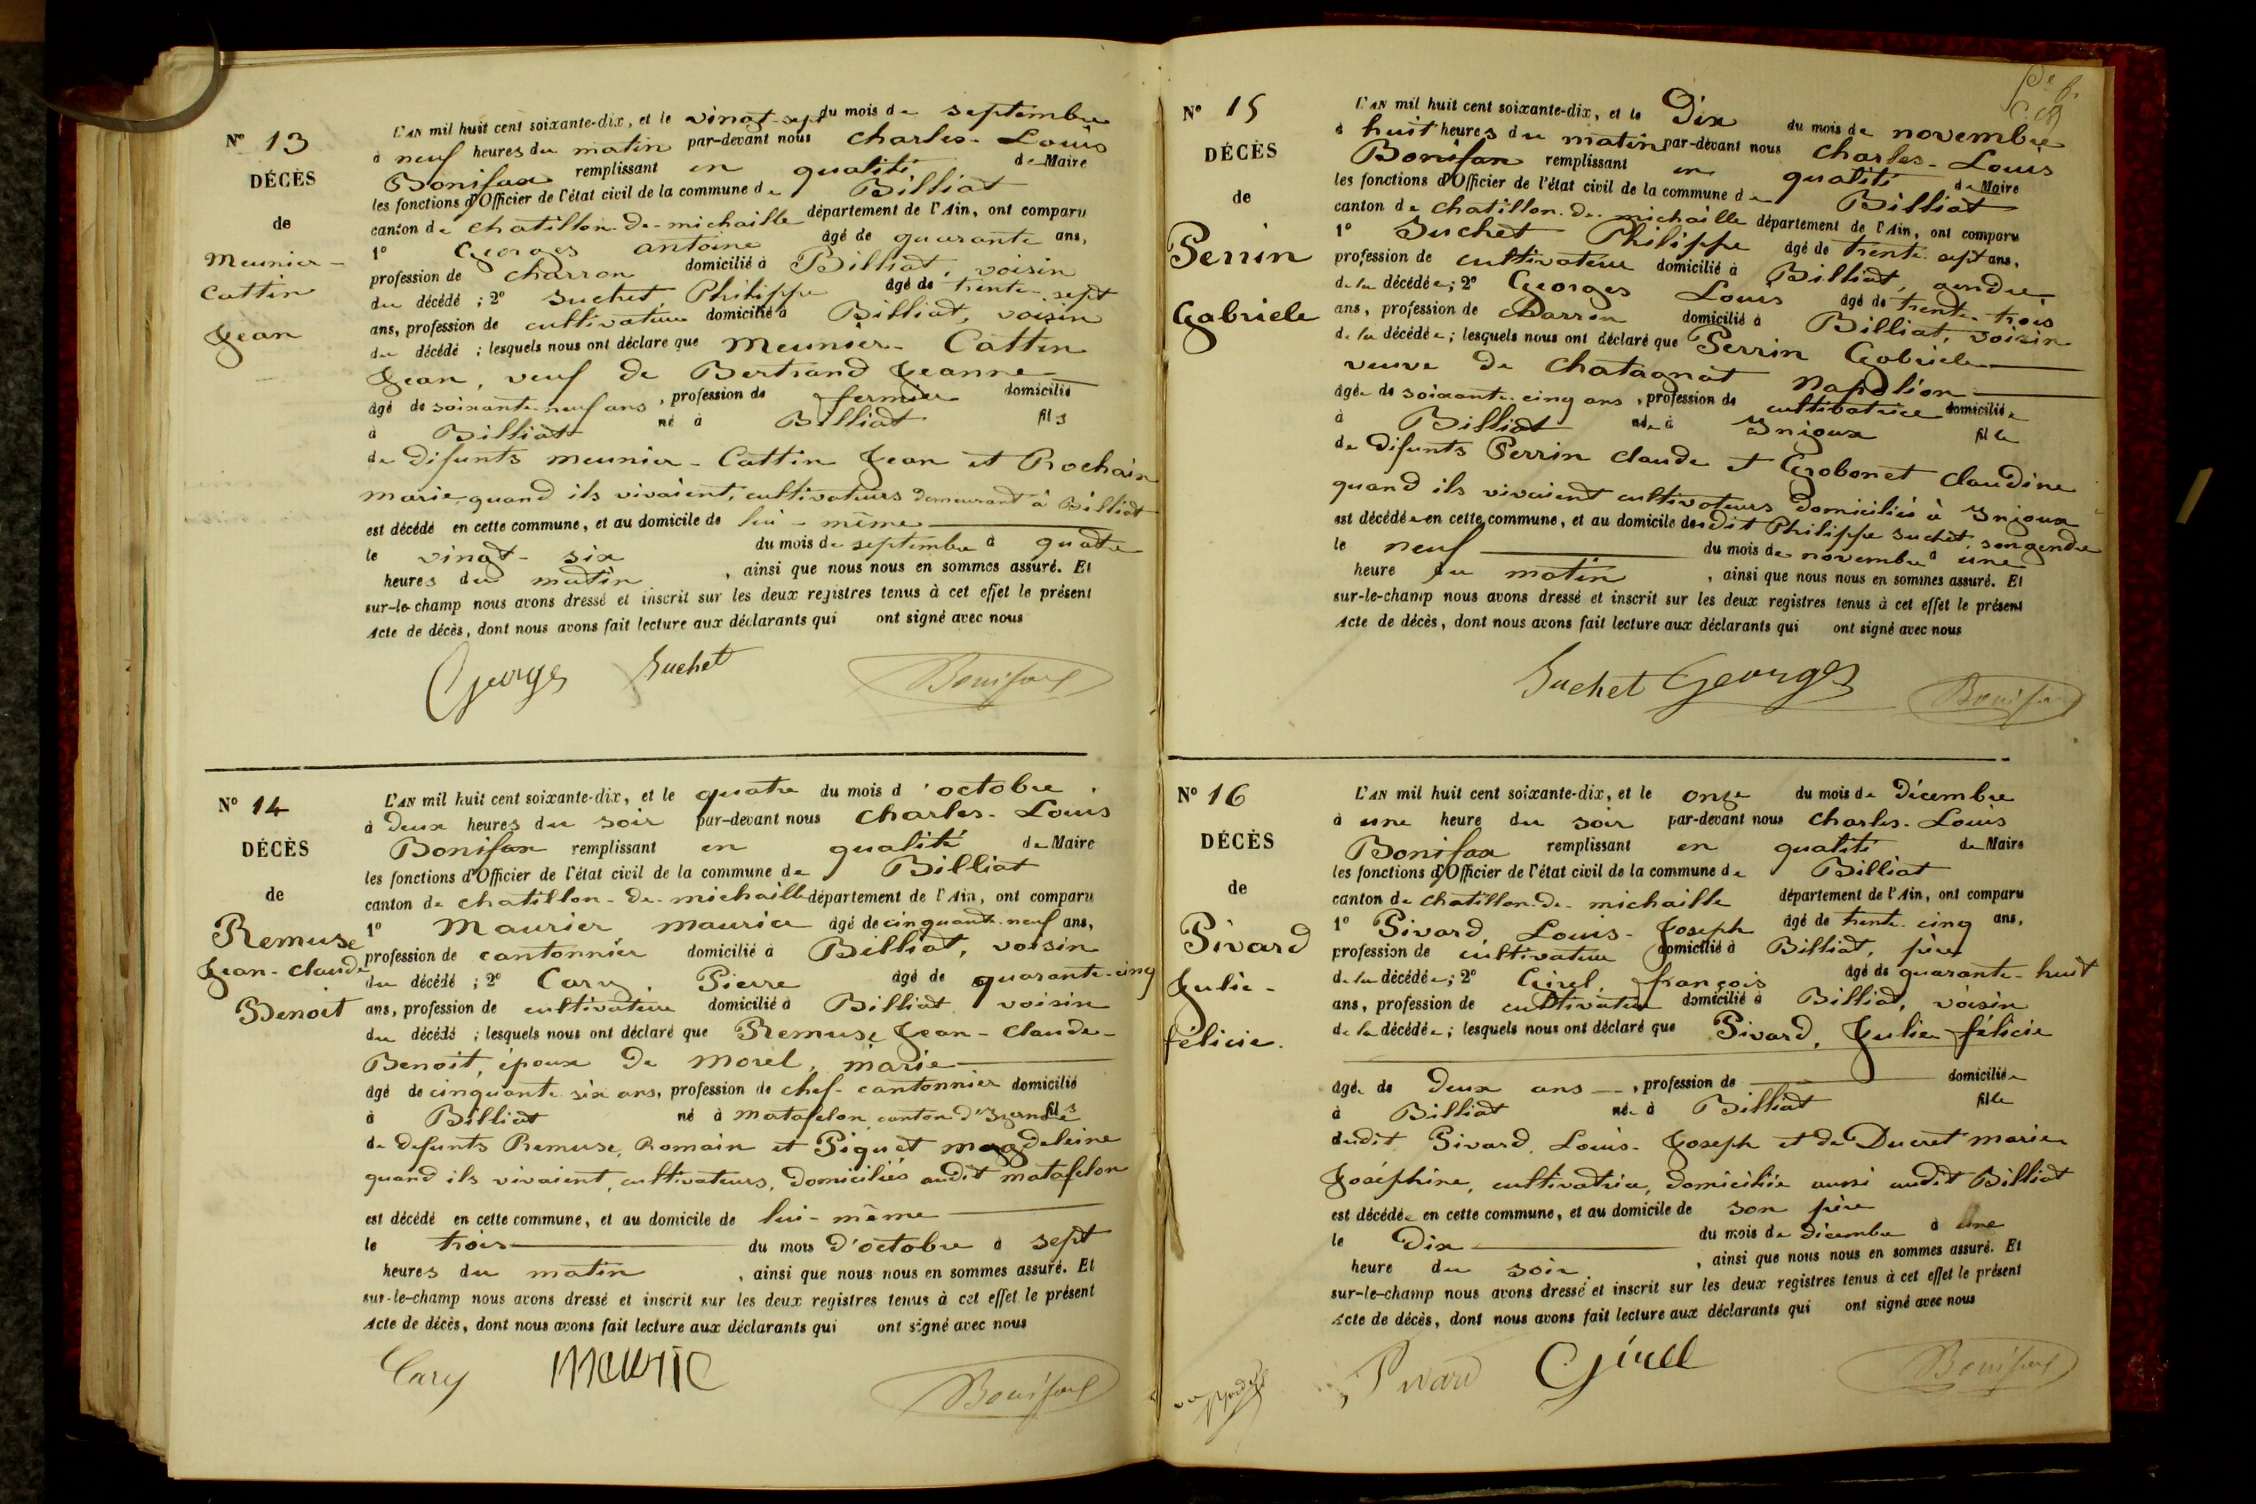 N° 13
DÉCÈS
de
Meunier-
Cattin
Jean
L'AN mil huit cent soixante-dix, et le vingt-sept du mois de septembre
à neuf heures du matin par-devant nous Charles-Louis
Bonifax remplissant en qualité de Maire
les fonctions d'Officier de l'état civil de la commune de Billiat
canton de Chatillon-de-michaille département de l'Ain, ont comparu
1° Georges antoine âgé de quarante ans,
profession de charron domicilié à Billiat, voisin
du décédé ; 2° Suchet, Philippe âgé de trente-sept
ans, profession de cultivateur domicilié à Billiat, voisin
du décédé ; lesquels nous ont déclaré que Meunier-Cattin
Jean, veuf de Bertrand Jeanne
âgé de soixante-neuf ans, profession de fermier domicilié
à Billiat né à Billiat fils
de défunts Meunier-Cattin Jean et Prochain
marie, quand ils vivaient, cultivateurs demeurant à Billiat
est décédé en cette commune, et au domicile de lui-même
le vingt-six du mois de septembre à quatre
heures du matin, ainsi que nous nous en sommes assuré. Et
sur-le-champ nous avons dressé et inscrit sur les deux registres tenus à cet effet le présent
Acte de décès, dont nous avons fait lecture aux déclarants qui ont signé avec nous
Georges Suchet Bonifax
N° 14
DÉCÈS
de
Remuse
Jean-Claude
Benoit
L'AN mil huit cent soixante-dix, et le quatre du mois d'octobre
à deux heures du soir par-devant nous Charles-Louis
Bonifax remplissant en qualité de Maire
les fonctions d'Officier de l'état civil de la commune de Billiat
canton de Chatillon-de-michaille département de l'Ain, ont comparu
1° Maurier maurice âgé de cinquante-neuf ans,
profession de cantonnier domicilié à Billiat, voisin
du décédé ; 2° Cary, Pierre âgé de quarante-cinq
ans, profession de cultivateur domicilié à Billiat voisin
du décédé ; lesquels nous ont déclaré que Remuse Jean-Claude-
Benoit, époux de Morel, marie
âgé de cinquante six ans, profession de chef-cantonnier domicilié
à Billiat né à Matafelon, canton d'Izernore fils
de défunts Remuse, Romain et Piquet magdeleine
quand ils vivaient, cultivateurs, domiciliés audit Matafelon
est décédé en cette commune, et au domicile de lui-même
le trois du mois d'octobre à sept
heures du matin, ainsi que nous nous en sommes assuré. Et
sur-le-champ nous avons dressé et inscrit sur les deux registres tenus à cet effet le présent
Acte de décès, dont nous avons fait lecture aux déclarants qui ont signé avec nous
Cary Bonifax
N° 15
DÉCÈS
de
Perrin
Gabriele
L'AN mil huit cent soixante-dix, et le Dix du mois de novembre
à huit heures du matin par-devant nous Charles-Louis
Bonifax remplissant en qualité de Maire
les fonctions d'Officier de l'état civil de la commune de Billiat
canton de Chatillon-de-michaille département de l'Ain, ont comparu
1° Suchet Philippe âgé de trente-sept ans,
profession de cultivateur domicilié à Billiat, gendre
de la décédée ; 2° Georges Louis âgé de trente-trois
ans, profession de charron domicilié à Billiat, voisin
de la décédée ; lesquels nous ont déclaré que Perrin Gabriele
veuve de Chatagnat Napoléon
âgée de soixante-cinq ans, profession de cultivatrice domiciliée
à Billiat née à Injoux fille
de défunts Perrin Claude et Grobonet Claudine
quand ils vivaient cultivateurs domiciliés à Injoux
est décédée en cette commune, et au domicile dudit Philippe Suchet, son gendre
le neuf du mois de novembre à une
heure du matin, ainsi que nous nous en sommes assuré. Et
sur-le-champ nous avons dressé et inscrit sur les deux registres tenus à cet effet le présent
Acte de décès, dont nous avons fait lecture aux déclarants qui ont signé avec nous
Suchet Georges Bonifax
N° 16
DÉCÈS
de
Pivard
Julie-
félicie.
L'AN mil huit cent soixante-dix, et le onze du mois de décembre
à une heure du soir par-devant nous Charles-Louis
Bonifax remplissant en qualité de Maire
les fonctions d'Officier de l'état civil de la commune de Billiat
canton de Chatillon-de-michaille département de l'Ain, ont comparu
1° Pivard, Louis-Joseph âgé de trente-cinq ans,
profession de cultivateur domicilié à Billiat, père
de la décédée ; 2° Girel, françois âgé de quarante-huit
ans, profession de cultivateur domicilié à Billiat, voisin
de la décédée ; lesquels nous ont déclaré que Pivard, Julie félicie
âgée de deux ans, profession de domiciliée
à Billiat née à Billiat fille
dudit Pivard, Louis-Joseph et de Ducret marie
Joséphine, cultivatrice, domiciliée aussi audit Billiat
est décédée en cette commune, et au domicile de son père
le Dix du mois de décembre à une
heure du soir, ainsi que nous nous en sommes assuré. Et
sur-le-champ nous avons dressé et inscrit sur les deux registres tenus à cet effet le présent
Acte de décès, dont nous avons fait lecture aux déclarants qui ont signé avec nous
Pivard Girel Bonifax